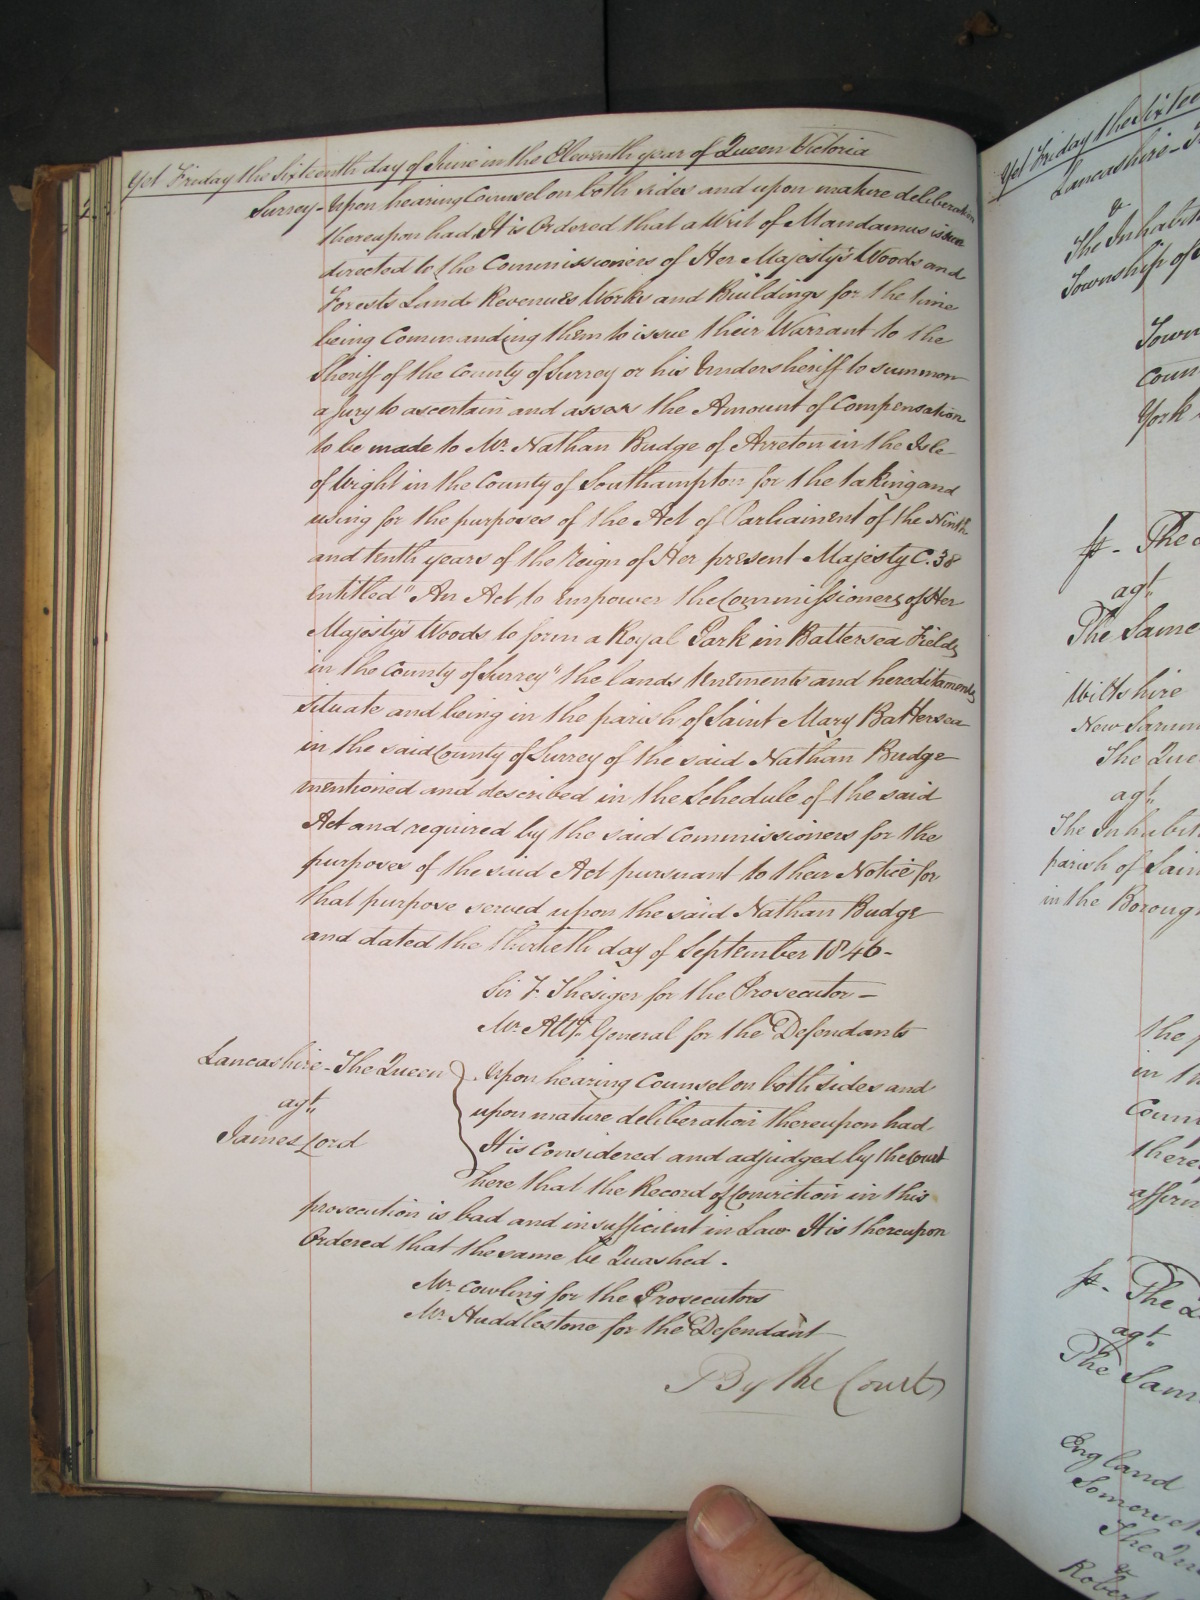 Yet Friday the Sixteenth day of June in the Eleventh year of Queen Victoria
Surrey - Upon hearing Counsel on both sides and upon mature deliberation
thereupon had It is Ordered that a Writ of Mandamus issue
directed to the Commissioners of Her Majesty's Woods and
Forests Land Revenues Works and Buildings for the time
being Commanding them to issue their Warrant to the
Sheriff of the County of Surrey or his Undersheriff to summon
a Jury to ascertain and assess the Amount of Compensation
to be made to Mr. Nathan Budge of Arreton in the Isle
of Wight in the County of Southampton for the taking and
using for the purposes of the Act of Parliament of the Ninth
and tenth years of the reign of Her present Majesty C. 38
entitled "An Act to empower the Commissioners of Her
Majesty's Woods to form a Royal Park in Battersea Fields
in the County of Surrey" the lands tenements and hereditaments
situate and being in the parish of Saint Mary Battersea
in the said County of Surrey of the said Nathan Budge
mentioned and described in the Schedule of the said
Act and required by the said Commissioners for the
purposes of the said Act pursuant to their Notice for
that purpose served upon the said Nathan Budge
and dated the thirtieth day of September 1846 -
Sir F. Thesiger for the Prosecutor -
Mr. Atty. General for the Defendants
Lancashire - The Queen
agt.
James Lord
Upon hearing Counsel on both sides and
upon mature deliberation thereupon had
It is Considered and adjudged by the Court
here that the Record of Conviction in this
prosecution is bad and insufficient in Law It is thereupon
Ordered that the same be Quashed.
Mr. Cowling for the Prosecutors
Mr. Huddlestone for the Defendant
By the Court
Yet Friday the Sixtee
Lancashire -
&
The Inhabit
Township of
Town
Coun
York
The
agt.
The Same
Wiltshire
New Sarum
The Que
agt.
The Inhabit
parish of Sain
in the Boroug
the
in th
Coun
there
affirm
The Q
agt.
The Sam
England
Somerset
The Qu
&
Rober